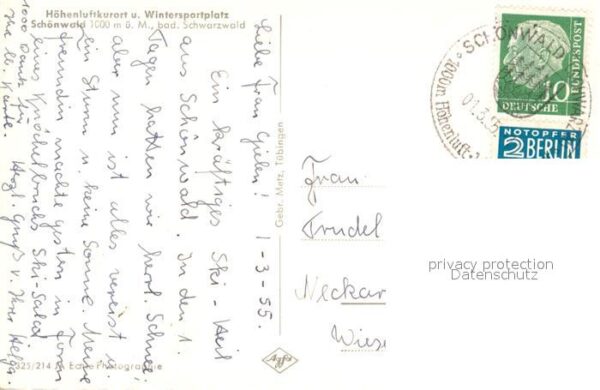 Höhenluftkurort u. Wintersportplatz
Schönwald 1000 m ü. M., bad. Schwarzwald
1-3-55.
Liebe Frau
Ein kräftiges Ski-Heil
aus Schönwald. In den 1.
Tagen hatten wir herrl. Schnee
aber nun ist alles vereist u.
ein Sturm u. keine Sonne. Meine
Freundin machte gestern in Form
eines Knöchelbruchs Ski-Salad
1000 Dank für
Ihre lb. Karte.
Herzl. Gruß v. Ihrer Helga.
Gebr. Metz, Tübingen
Frau
Trudel
Neckar
Wiese
SCHÖNWALD
1000m Höhenluft
01.3.5
10
DEUTSCHE
BUNDESPOST
NOTOPFER
2 BERLIN
privacy protection
Datenschutz
Agfa
325/214 M Echte Photographie